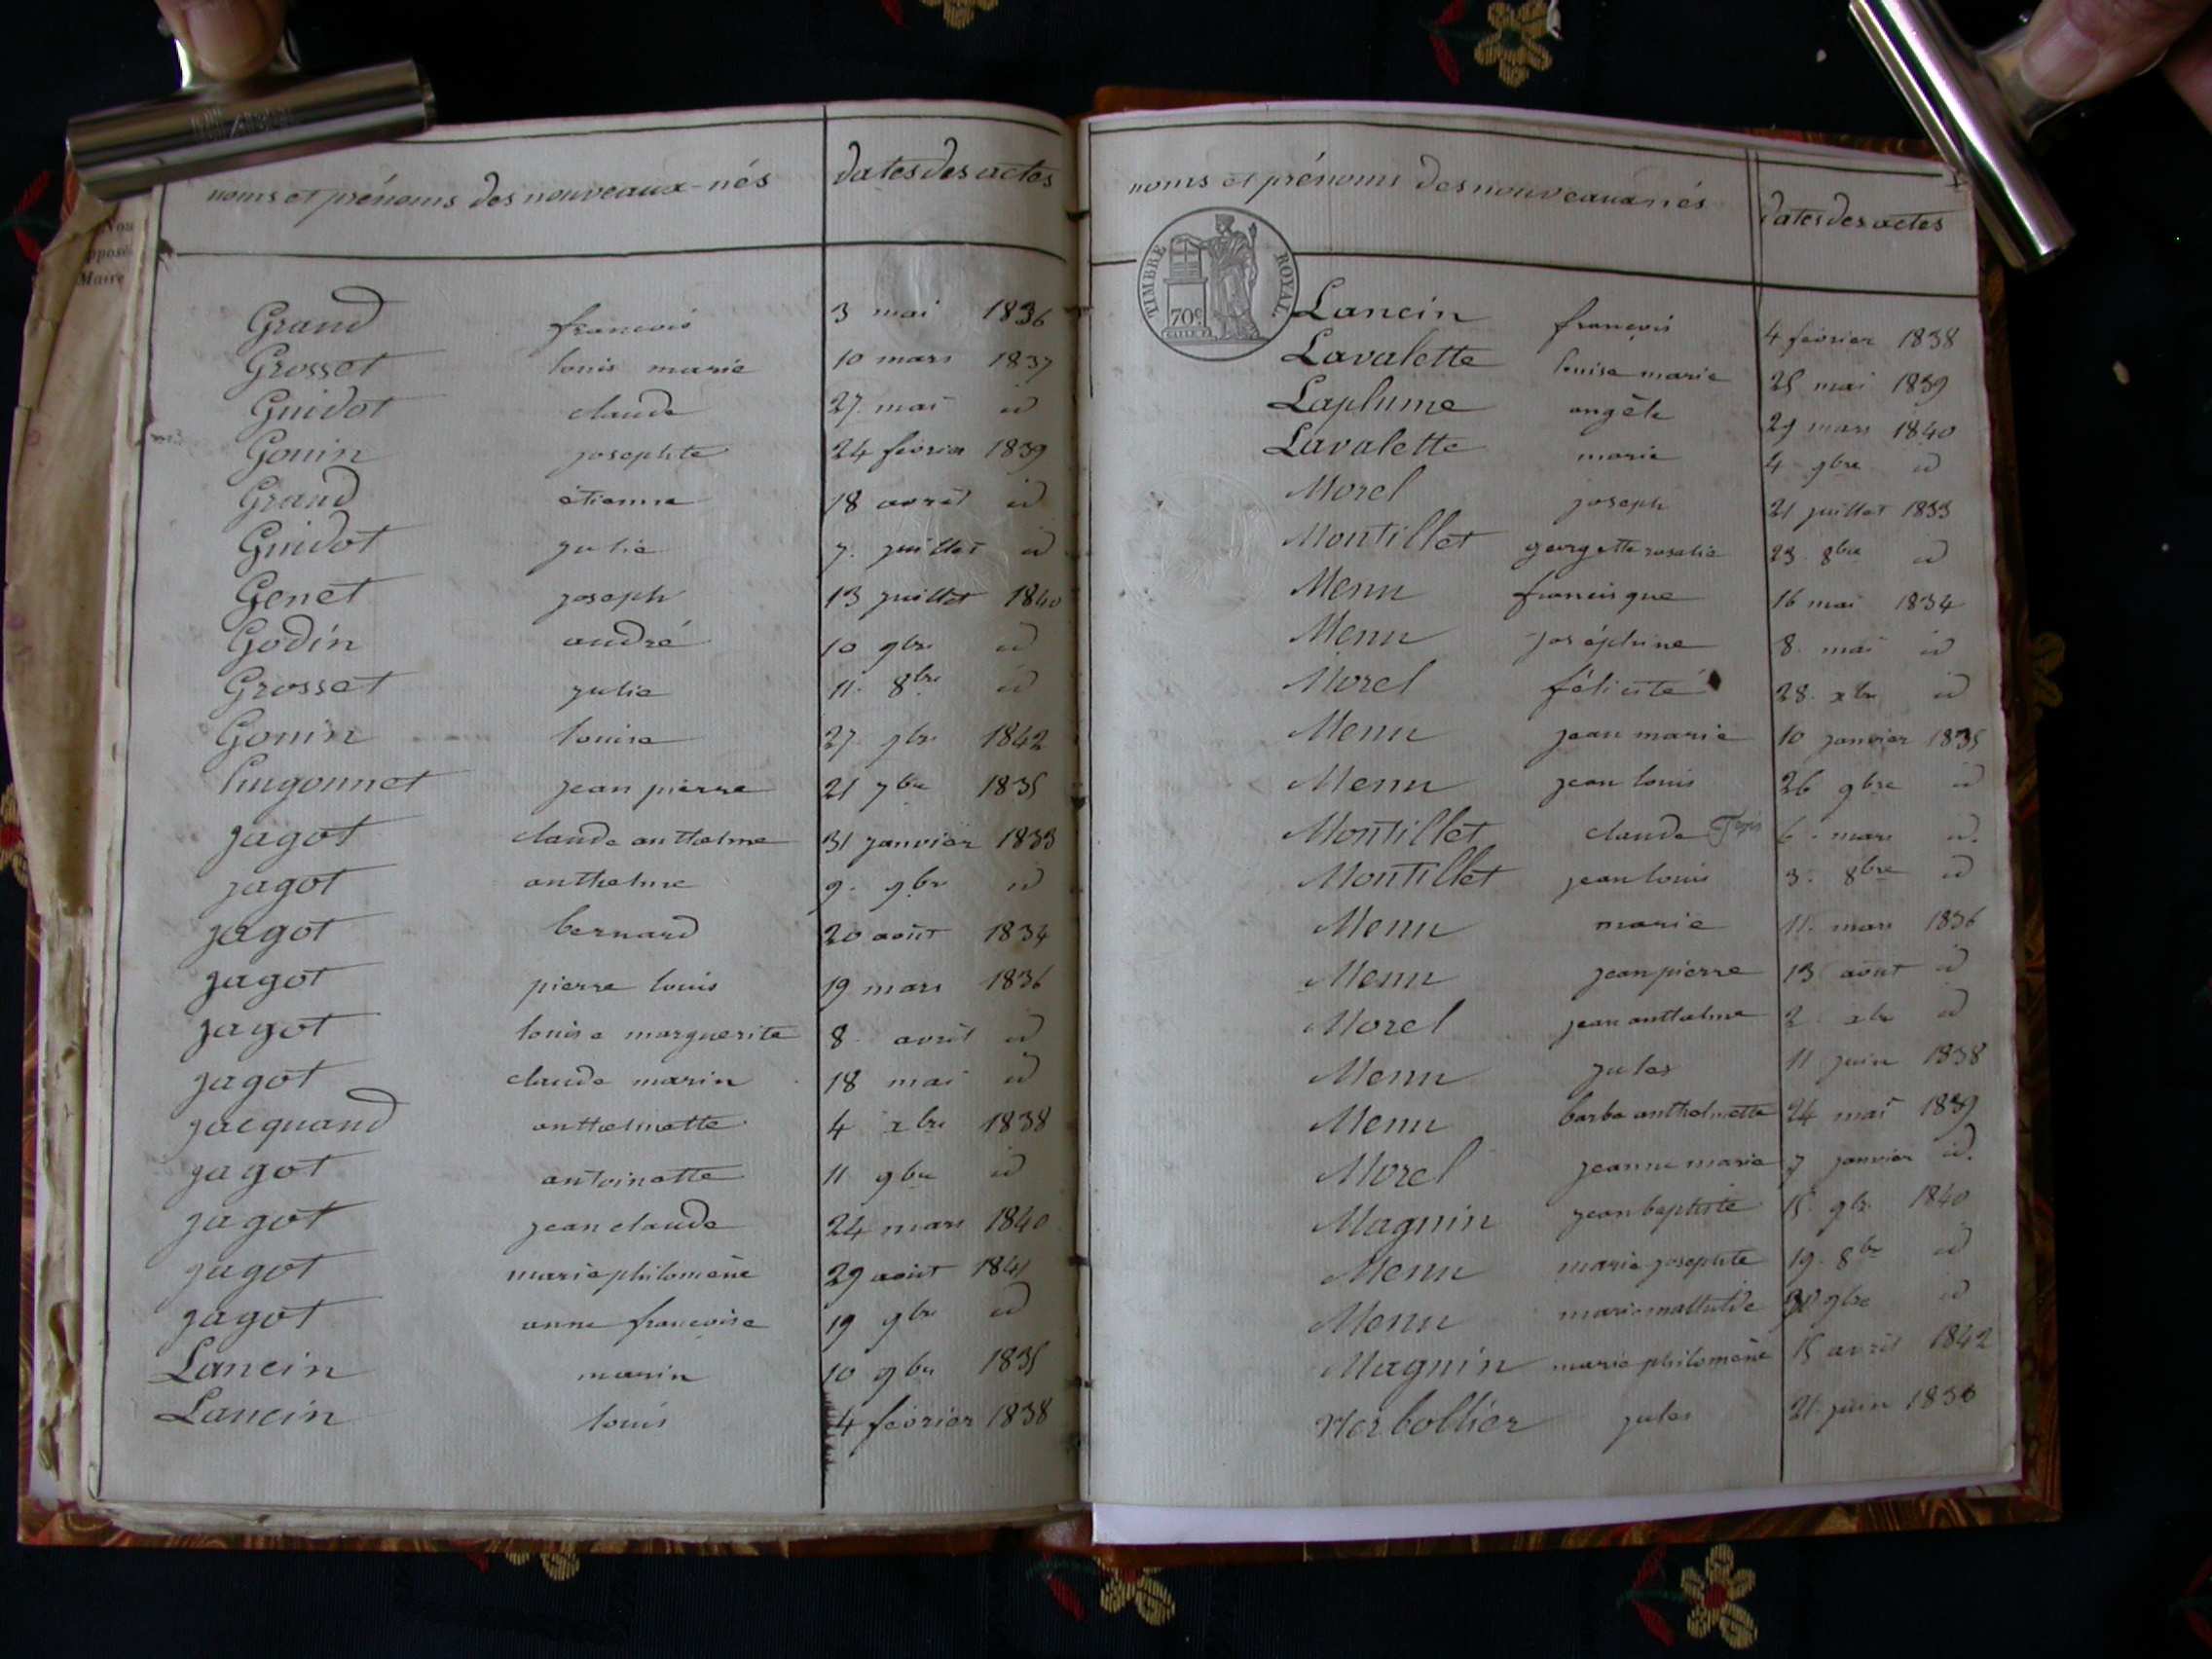 Nou
pposé
Maire
noms et prénoms des nouveaux-nés dates des actes
Grand francois 3 mai 1836
Grosset louis marie 10 mars 1837
Guidot claude 27. mai id
Gonin josephte 24 février 1839
Grand étienne 18 avril id
Guidot julie 7. juillet id
Genet joseph 13 juillet 1840
Godin andré 10 9bre id
Grosset julie 11. 8bre id
Gonin louise 27 1842
hugonnet jean pierre 21 7bre 1835
jagot claude anthelme 31 janvier 1833
jagot anthelme 9. 9bre id
jagot bernard 20 août 1834
jagot pierre louis 19 mars 1836
jagot louise marguerite 8. avril id
jagot claude marin 18 mai id
jacquand anthelmette 4 xbre 1838
jagot antoinette 11 9bre id
jagot jean claude 24 mars 1840
jagot marie philomène 29 août 1841
jagot anne francoise 19 9bre id
Lancin marin 10 9bre 1835
Lancin louis 4 février 1838
noms et prénoms des nouveaux nés dates des actes
TIMBRE ROYAL
70c
Lancin françois 4 février 1838
Lavalette louise marie 25 mai 1839
Laplume angèle 29 mars 1840
Lavalette marie 4 9bre id
Morel joseph 21 juillet 1833
Montillet georgette rosalie 23. 8bre id
Menu francisque 16 mai 1834
Menu joséphine 8. mai id
Morel félicité 28. xbre id
Menu jean marie 10 janvier 1835
Menu jean louis 26 9bre id
Montillet claude 6. mars id.
Montillet jean louis 3. 8bre id
Menu marie 11. mars 1836
Menu jean pierre 13 août id
Morel jean anthelme 2 xbre id
Menu jules 11 juin 1838
Menu barbe anthelmette 24 mai 1839
Morel jeanne marie 7 janvier id.
Magnin jean baptiste 15. 9bre 1840
Menu marie josephte 19. 8bre id
Menu marie mathilde 9bre id
Magnin marie philomène 15 avril 1842
Merbollier jules 21. juin 1836